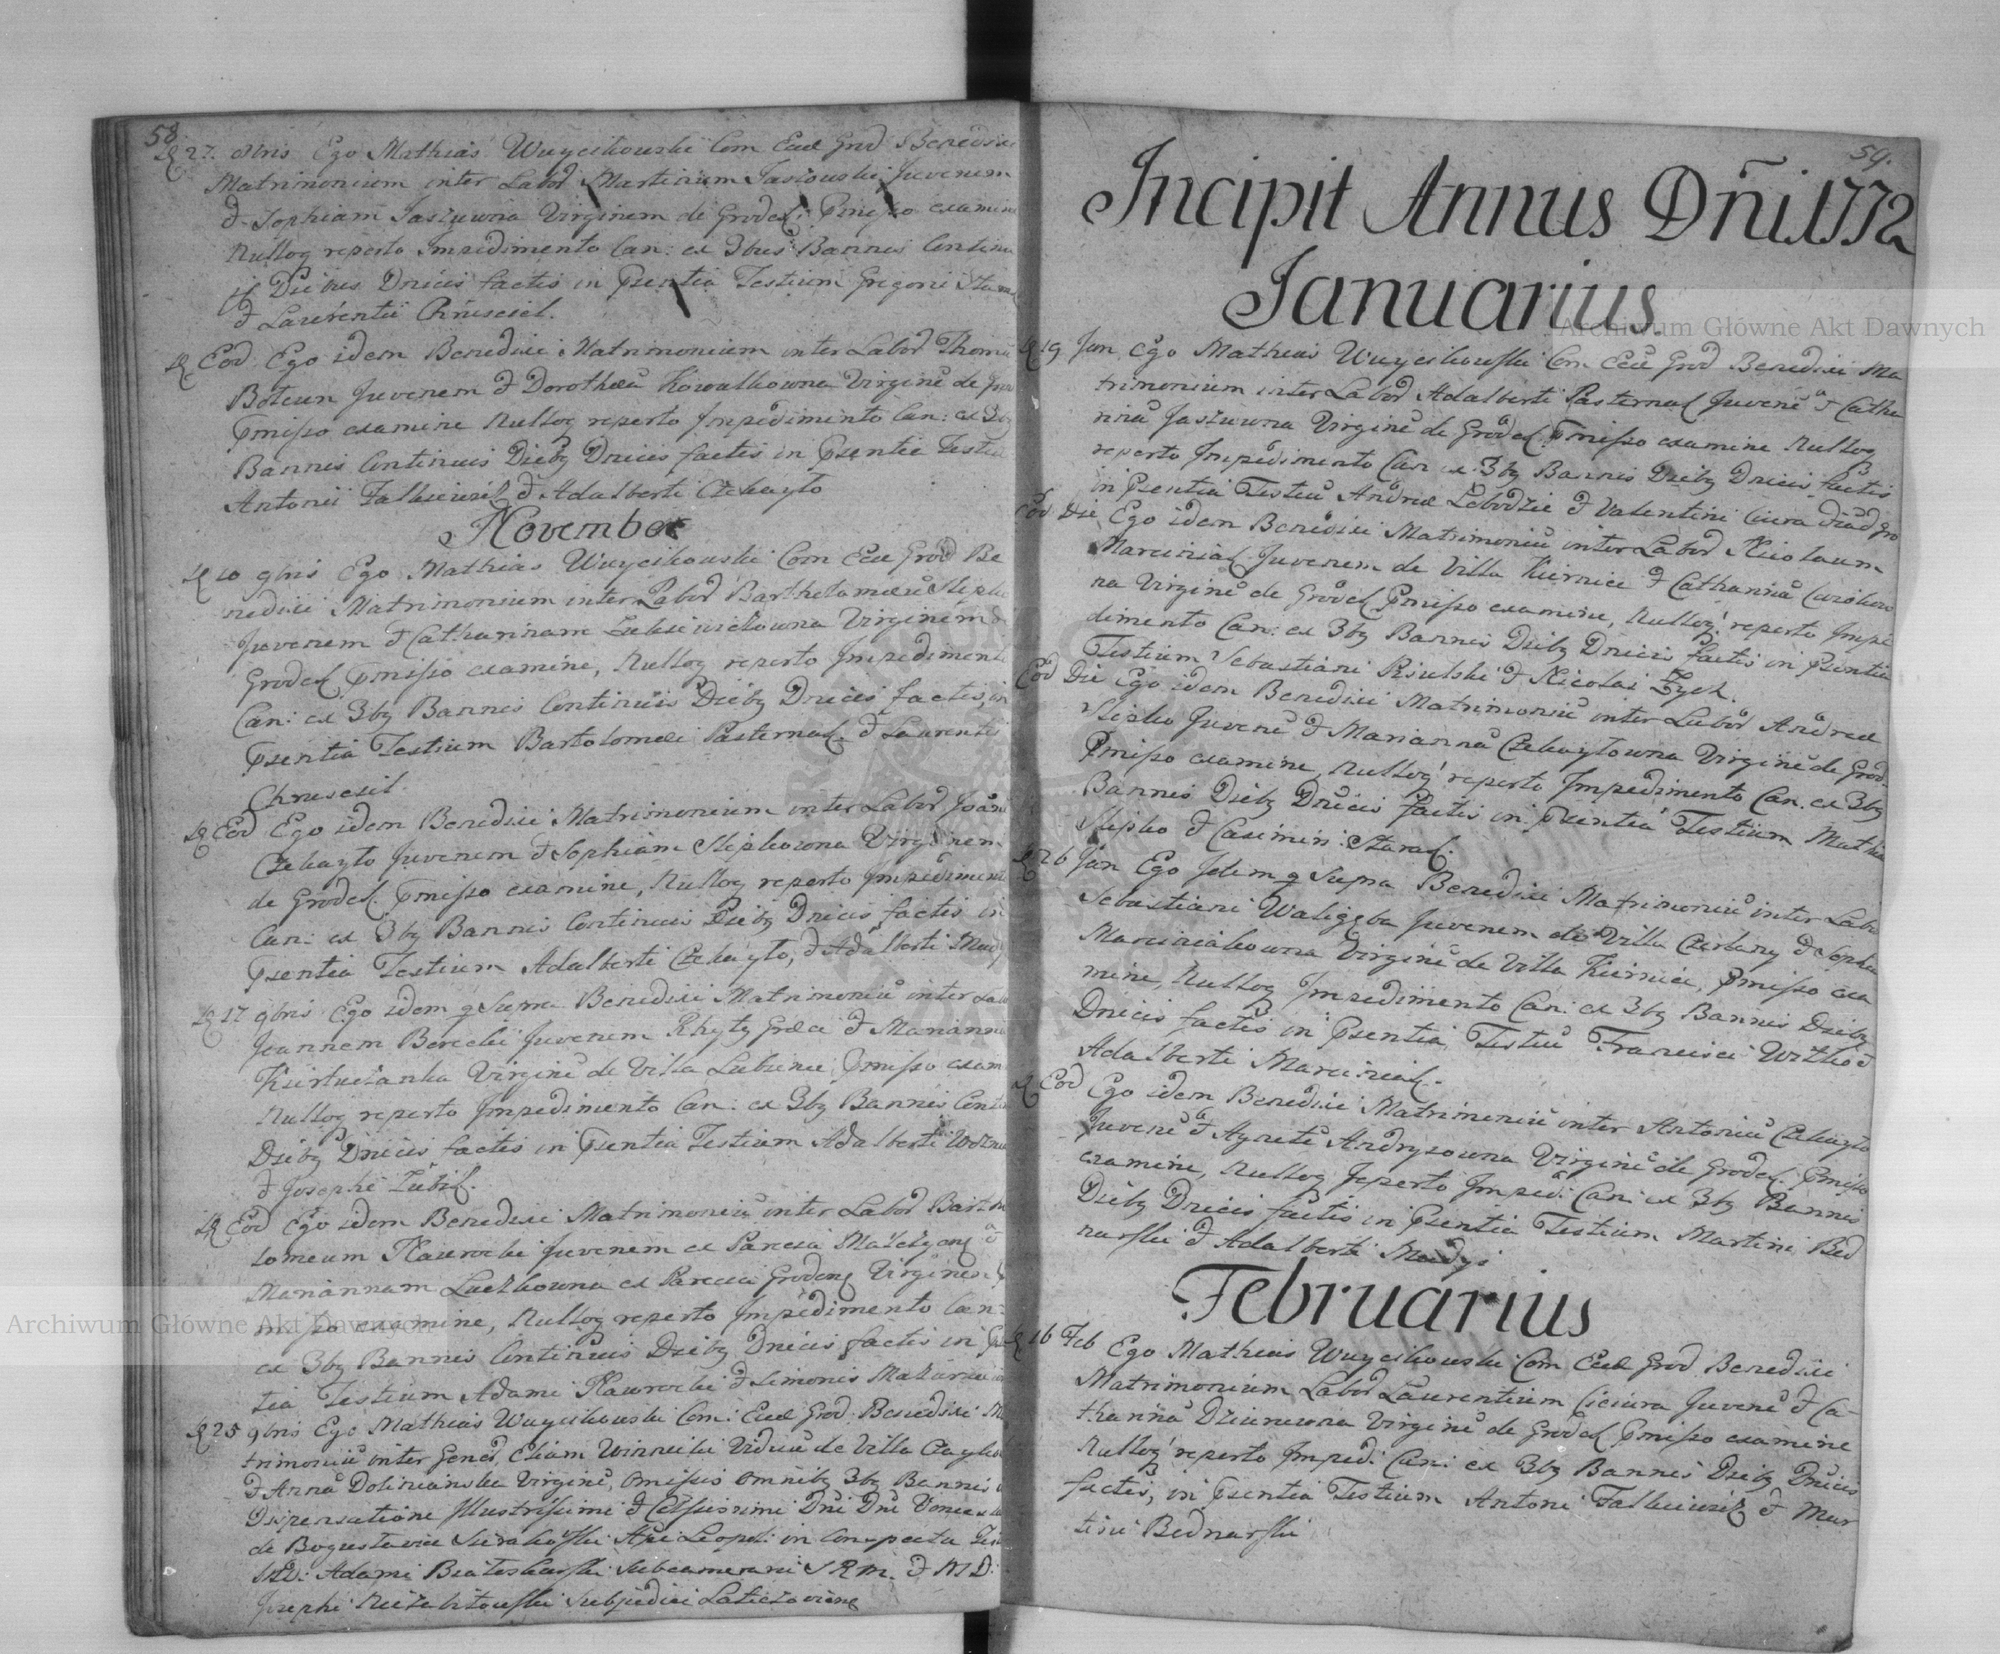 58.
27. 8bris Ego Mathias Wuycikowski Com Eccl Grod Benedixi
Matrimonium inter Labor Martinum Jasiowski Juvenem
& Sophiam Jaszuwna Virginem de Grodek. Pmisso examine
Nulloq reperto Impedimento Can: ex 3bus Bannis Continu
is Diebus Dnicis factis in Psentia Testium Grigorii
& Laurentii Chrusciel.
Eod Ego idem Benedixi Matrimonium inter Labor Thoma
Juvenem & Dorotheã Kowalkowna Virginẽ de
Pmisso examine Nulloq reperto Impedimento Can: ex 3bq
Bannis Continuis Diebq Dnicis factis in Psentia Testiu
Antonii Falkiewicz & Adalberti Czekayło
November
10 9bris Ego Mathias Wuycikowski Com Eccl Grod Be
nedixi Matrimonium inter Labor Bartholomæũ Slipko
Juvenem & Catharinam Virginem
Grodek Pmisso examine, Nulloq reperto Impedimento
Can: ex 3bq Bannis Continuis Diebq Dnicis factis, in
Psentia Testium Bartolomæi Pasternak & Laurentii
Chrusciel.
Eod Ego idem Benedixi Matrimonium inter Labor Joãn
Czekayło Juvenem & Sophiam Slipkowna Virginem
de Grodek. Pmisso examine, Nulloq reperto Impedimento
Can: ex 3bq Bannis Continuis Diebq Dnicis factis in
Psentia Testium Adalberti Czekayło, & Adalberti
17 9bris Ego idem q Supra Benedixi Matrimoniũ inter Labo
Joannem Berecki Juvenem Rhytq Græci & Mariannã
Virginẽ de Villa Lubienie, Pmisso exam
Nulloq reperto Impedimento Can: ex 3bq Bannis Conti
Diebq Dnicis factis in Psentia Testium Adalberti
& Josephi
Eod Ego idem Benedixi Matrimoniũ inter Labor Barto
lomeum Nawrocki Juvenem ex Parœcia &
Mariannam Luczkowna ex Parœcia Grodenq Virginẽ
misso examine, Nulloq reperto Impedimento Can:
ex 3bq Bannis Continuis Diebq Dnicis factis in Psen
tia Testium Adami Nawrocki & Simonis
25 9bris Ego Mathias Wuycikowski Com: Eccl Grod Benedixi Ma
trimoniũ inter Genero, Eliam Winnicki Viduũ de Villa
& Annã Dolinianska Virginẽ, omissis omnibq 3bq Bannis
Dispensatione Illustrissimi & Celsissimi Dñi Dñi
de Bogusławice Sierakowski Leopol: in Conspectu
MD: Adami Subcamerarii S R M. & M D:
Josephi Subjudici
59.
Incipit Annus Dñi.1772
Januarius
19 Jan Ego Mathias Wuycikowski Com Eccl Grod Benedixi Ma
trimonium inter Labor Adalberti Pasternak Juvenẽ & Catha
rinã Jaszuwna Virginẽ de Grodek Pmisso examine Nulloq
reperto Impedimento Can ex 3bq Bannis Diebq Dnicis factis
in Psentia Testiũ Andreæ Łebodzie & Valentini
Eod Die Ego idem Benedixi Matrimoniũ inter Labor Nicolaum
Marciniak Juvenem de Villa Kiernice & Catharinã
na Virginẽ de Grodek Pmisso examine, Nulloq reperto Impe
dimento Can: ex 3bq Bannis Diebq Dnicis factis in Psentia
Testium Sebastiani & Nicolai Zych.
Eod Die Ego idem Benedixi Matrimoniũ inter Labor Andreæ
Slipko Juvenẽ & Mariannã Czekayłowna Virginẽ de Grod.
Pmisso examine, Nulloq reperto Impedimento Can. ex 3bq
Bannis Diebq Dnicis factis in Psentia Testium Mathiæ
Slipko & Casimiri Starak.
26 Jan Ego Idem q Supra Benedixi Matrimoniũ inter Labo
Sebastiani Juvenem de Villa Czerlany & Sophia
Marciniakowna Virginẽ de Villa Kiernice, Pmisso exa
mine, Nulloq Impedimento Can: ex 3bq Bannis Diebq
Dnicis factis in Psentia Testiũ Francisci Witko &
Adalberti Marciniak.
Eod Ego idem Benedixi Matrimoniũ inter Antoniũ Czekayło
Juvenẽ & Agnetẽ Andrysowna Virginẽ de Grodek. Pmisso
examine, Nulloq reperto Impedi: Can: ex 3bq Bannis
Diebq Dnicis factis in Psentia Testium Martini Bed
narski & Adalberti
Februarius
16 Feb Ego Mathias Wuycikowski Com Eccl Grod Benedixi
Matrimonium Labor Laurentium Ciciura Juvenẽ & Ca-
tharinã Dziurowna Virginẽ de Grodek Pmisso examine
Nulloq reperto Impedi: Can: ex 3bq Bannis Diebq Dnicis
factis, in Psentia Testium Antoni Falkiewicz & Mar
tini Bednarski
Archiwum Główne Akt Dawnych
Archiwum Główne Akt Dawnych